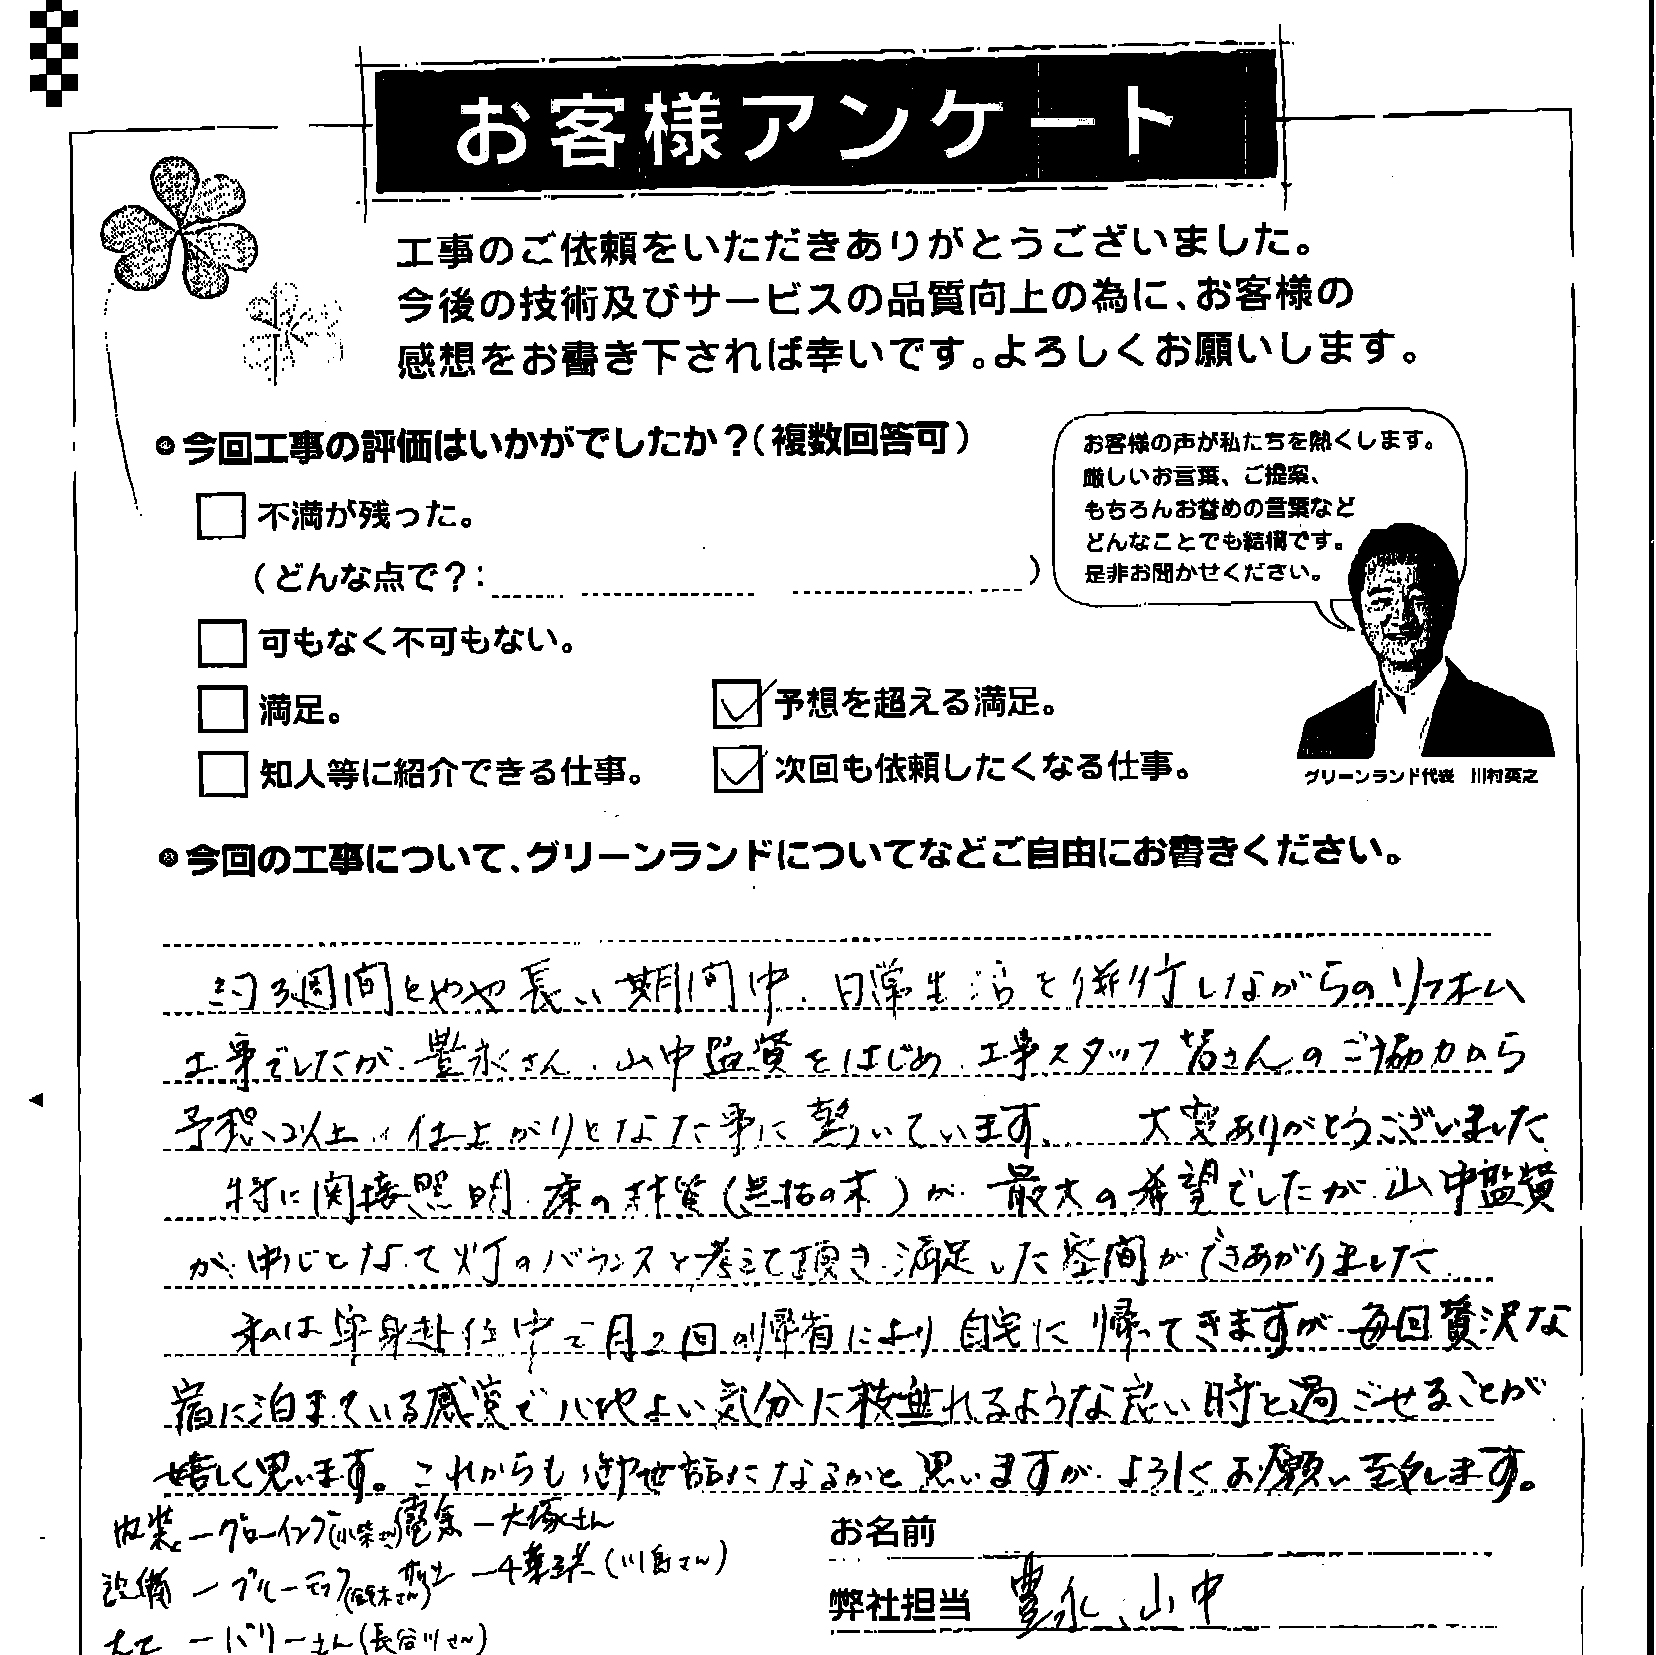 お客様アンケート
工事のご依頼をいただきありがとうございました。
今後の技術及びサービスの品質向上の為に、お客様の
感想をお書き下されば幸いです。よろしくお願いします。
今回工事の評価はいかがでしたか？（複数回答可）
不満が残った。
（どんな点で？：　　　）
可もなく不可もない。
満足。
予想を超える満足。
知人等に紹介できる仕事。
次回も依頼したくなる仕事。
お客様の声が私たちを熱くします。
厳しいお言葉、ご提案、
もちろんお誉めの言葉など
どんなことでも結構です。
是非お聞かせください。
グリーンランド代表　川村英之
今回の工事について、グリーンランドについてなどご自由にお書きください。
約3週間とやや長い期間中、日常生活と併行しながらのリフォーム
工事でしたが、豊永さん、山中監督をはじめ、工事スタッフ皆さんのご協力から
予想以上の仕上がりとなった事に驚いています。大変ありがとうございました
特に間接照明、床の材質（無垢の木）が、最大の希望でしたが、山中監督
が、中心となって灯のバランスを考えて頂き、満足した空間ができあがりました
私は単身赴任中で月2回の帰省により自宅に帰ってきますが毎回贅沢な
宿に泊まっている感覚で心地よい気分に なれるような良い時を過ごせることが
嬉しく思います。これからも御世話になるかと思いますが、よろしくお願い致します。
内装 ー グローイング
電気 ー 大塚さん
設備 ー (鈴木さん)
(川島さん)
大工 ー さん(長谷川さん)
お名前
弊社担当 豊永、山中